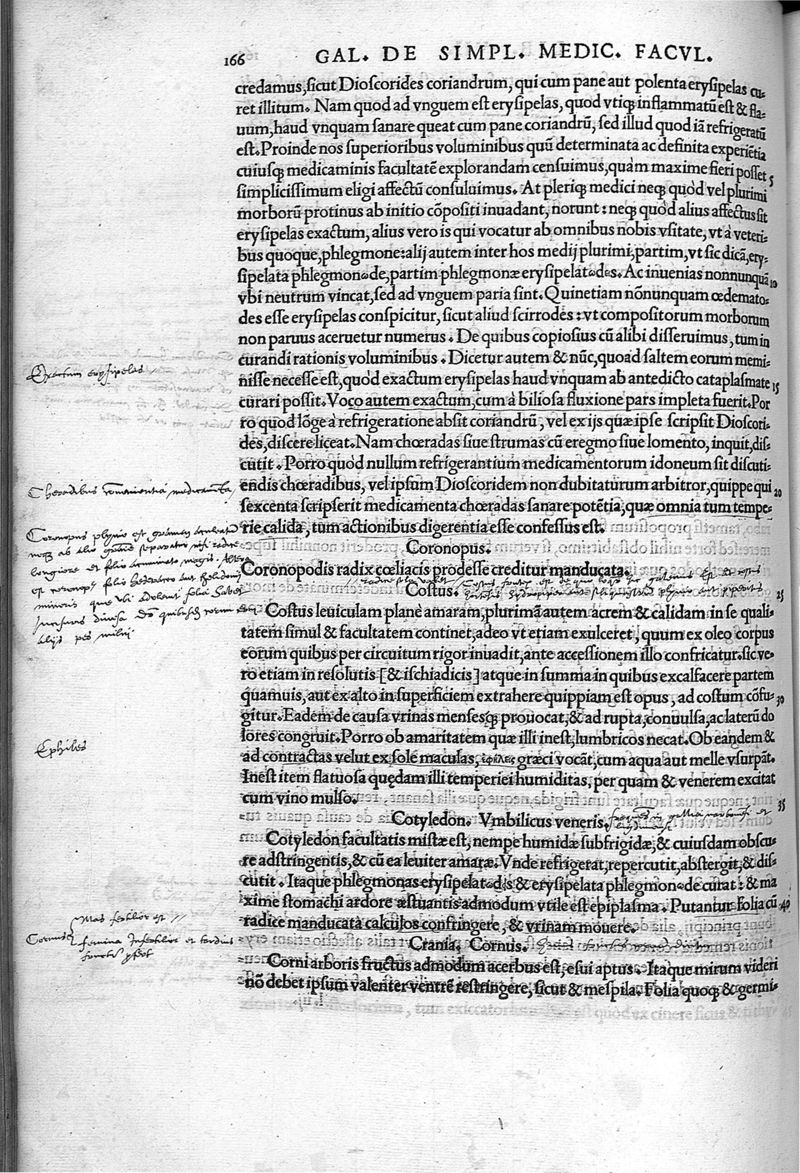 166 GAL. DE SIMPL. MEDIC. FACVL.
credamus, sicut Dioscorides coriandrum, qui cum pane aut polenta erysipelas cu-
ret illitum. Nam quod ad vnguem est erysipelas, quod vtiq; inflammatū est & fla-
uum, haud vnquam sanare queat cum pane coriandrū, sed illud quod iā refrigeratū
est. Proinde nos superioribus voluminibus quū determinata ac definita experiētia
cuiusq; medicaminis facultatē explorandam censuimus, quàm maxime fieri posset 5
simplicissimum eligi affectū consuluimus. At pleriq; medici neq; quòd vel plurimi
morborū protinus ab initio cōpositi inuadant, norunt: neq; quòd alius affectus sit
erysipelas exactum, alius vero is qui vocatur ab omnibus nobis vsitate, vt à veteri-
bus quoque, phlegmone: alij autem inter hos medij plurimi, partim, vt sic dicā, ery-
sipelata phlegmonωde, partim phlegmonæ erysipelatωdes. Ac inuenias nonnunquā 10
vbi neutrum vincat, sed ad vnguem paria sint. Quinetiam nōnunquam œdematω-
des esse erysipelas conspicitur, sicut aliud scirrodes: vt compositorum morborum
non paruus aceruetur numerus. De quibus copiosius cū alibi disseruimus, tum in
curandi rationis voluminibus. Dicetur autem & nūc, quoad saltem eorum memi-
nisse necesse est, quòd exactum erysipelas haud vnquam ab antedicto cataplasmate 15
curari possit. Voco autem exactum, cum à biliosa fluxione pars impleta fuerit. Por
ro quod lōge à refrigeratione absit coriandrū, vel ex ijs quæ ipse scripsit Dioscori-
des, discere liceat. Nam chœradas siue strumas cū eregmo siue lomento, inquit, dis-
cutit. Porro quod nullum refrigerantium medicamentorum idoneum sit discuti-
endis chœradibus, vel ipsum Dioscoridem non dubitaturum arbitror, quippe qui 20
sexcenta scripserit medicamenta chœradas sanare potētia, quæ omnia tum tempe-
rie calida, tum actionibus digerentia esse confessus est.
Coronopus.
Coronopodis radix cœliacis prodesse creditur manducata.
Costus.
Costus leuiculam plane amaram, plurimā autem acrem & calidam in se quali- 25
tatem simul & facultatem continet, adeo vt etiam exulceret, quum ex oleo corpus
eorum quibus per circuitum rigor inuadit, ante accessionem illo confricatur. sic ve-
ro etiam in resolutis [& ischiadicis] atque in summa in quibus excalfacere partem
quamuis, aut ex alto in superficiem extrahere quippiam est opus, ad costum cōfu-
gitur. Eadem de causa vrinas mensesq; prouocat, & ad rupta, conuulsa, ac laterū do 30
lores congruit. Porro ob amaritatem quæ illi inest, lumbricos necat. Ob eandem &
ad contractas velut ex sole maculas, ἐφήλεις græci vocāt, cum aqua aut melle vsurpāt.
Inest item flatuosa quędam illi temperiei humiditas, per quam & venerem excitat
cum vino mulso.
Cotyledon. Vmbilicus veneris. 35
Cotyledon facultatis mistæ est, nempe humidæ subfrigidæ, & cuiusdam obscu-
re adstringentis, & cū ea leuiter amaræ. Vnde refrigerat, repercutit, abstergit, & dis-
cutit. Itaque phlegmonas erysipelatωdis & erysipelata phlegmonωde curat: & ma
xime stomachi ardore æstuantis admodum vtile est epiplasma. Putantur folia cū 40
radice manducata calculos confringere, & vrinam mouere.
Crania. Cornus.
Corni arboris fructus admodum acerbus est, esui aptus. Itaque mirum videri
nō debet ipsum valenter ventrē restringere, sicut & mespila. Folia quoq; & germi-
Exactum erysipelas
Cheradibus medicamenta
Ephiles
Cornus